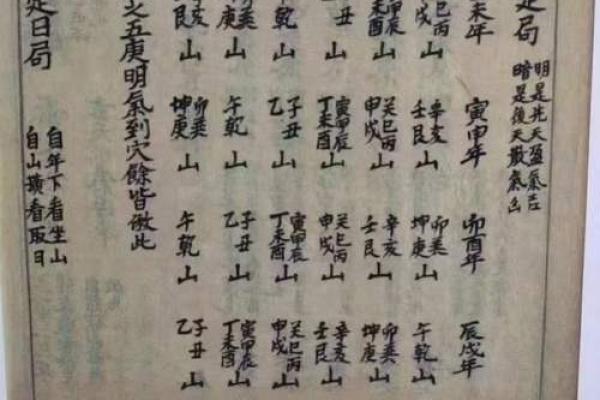 定局
明是先天盈氣吉
暗是後天散氣凶
未年 寅申年 卯酉年 辰戌年
癸巳丙申戌山 辛亥壬艮山 卯巽坤庚山 午乾山
甲辰丁未酉山 癸巳丙申戌山 辛亥壬艮山 卯巽坤庚山
丑山 寅甲辰丁未酉山 癸巳丙申戌山 辛亥壬艮山
乾山 子丑乙山 寅甲辰丁未酉山 癸巳丙申戌山
巽庚山 午乾山 子丑乙山 寅甲辰丁未酉山
亥艮山 卯巽坤庚山 午乾山 子丑乙山
之五庚明氣到穴餘皆倣此
定日局
自年下看坐山
自山橫看取日